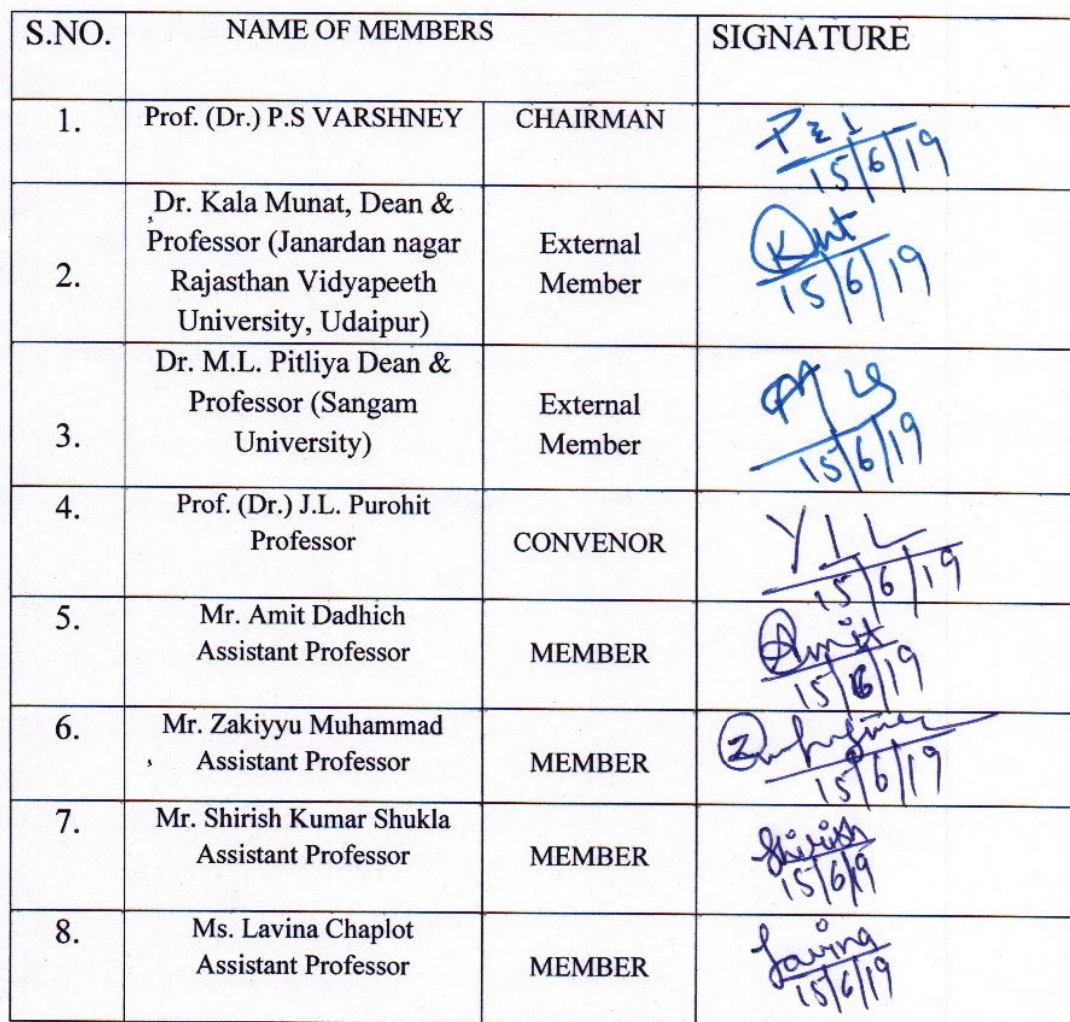 S.NO. NAME OF MEMBERS SIGNATURE
1. Prof. (Dr.) P.S VARSHNEY CHAIRMAN
15/6/19
Dr. Kala Munat, Dean &
Professor (Janardan nagar
Rajasthan Vidyapeeth
University, Udaipur)
2.
External
Member
15/6/19
Dr. M.L. Pitliya Dean &
Professor (Sangam
University)
3.
External
Member
15/6/19
4. Prof. (Dr.) J.L. Purohit
Professor
CONVENOR
15/6/19
5. Mr. Amit Dadhich
Assistant Professor
MEMBER
Amit
15/6/19
6. Mr. Zakiyyu Muhammad
Assistant Professor
MEMBER
15/6/19
7. Mr. Shirish Kumar Shukla
Assistant Professor
MEMBER
Shirish
15/6/19
8. Ms. Lavina Chaplot
Assistant Professor
MEMBER
Lavina
15/6/19